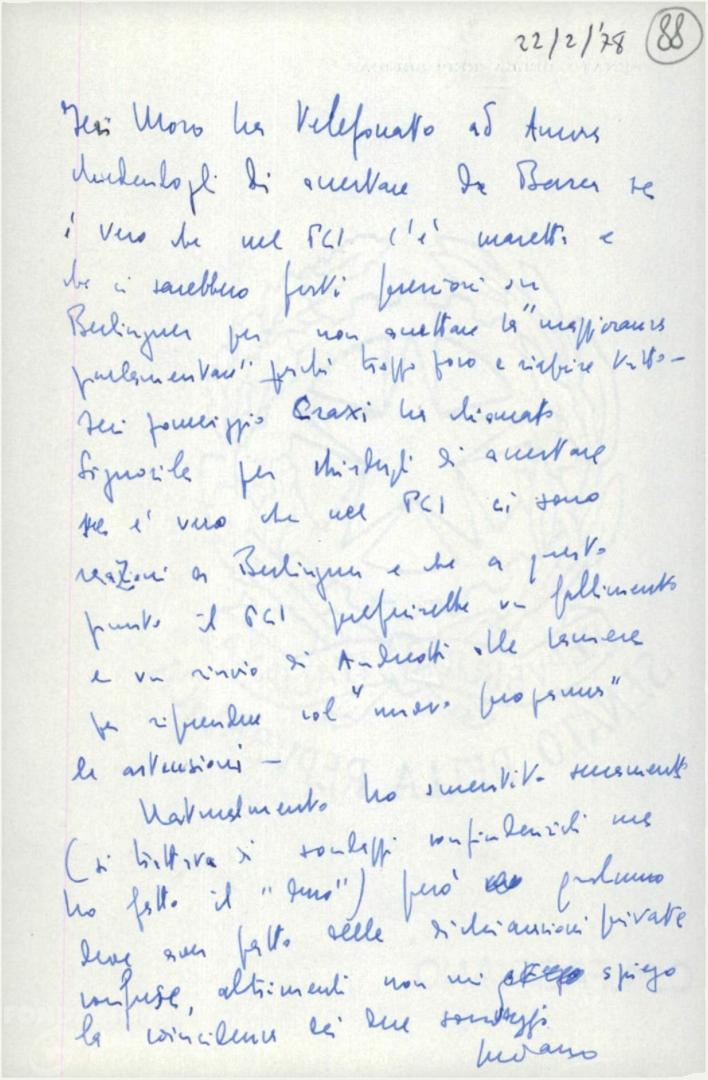 22/2/'78 88
Ieri Moro ha telefonato ad Ancora
chiedendogli di accertare da Barca se
è vero che nel PCI c'è maretta e
che ci sarebbero forti pressioni su
Berlinguer per non accettare la "maggioranza
parlamentare" perché troppo poco e riaprire tutto —
Ieri pomeriggio Craxi ha chiamato
Signorile per chiedergli di accertare
se è vero che nel PCI ci sono
reazioni a Berlinguer e che a questo
punto il PCI preferirebbe un fallimento
e un rinvio di Andreotti alle Camere
per riprendere col "nuovo programma"
le astensioni —
Naturalmente ho smentito seccamente
(si trattava di sondaggi confidenziali ma
ho fatto il "duro") però qualcuno
deve aver fatto delle dichiarazioni private
confuse, altrimenti non mi spiego
la coincidenza dei due sondaggi
Luciano
SENATO DELLA REPUBBLICA